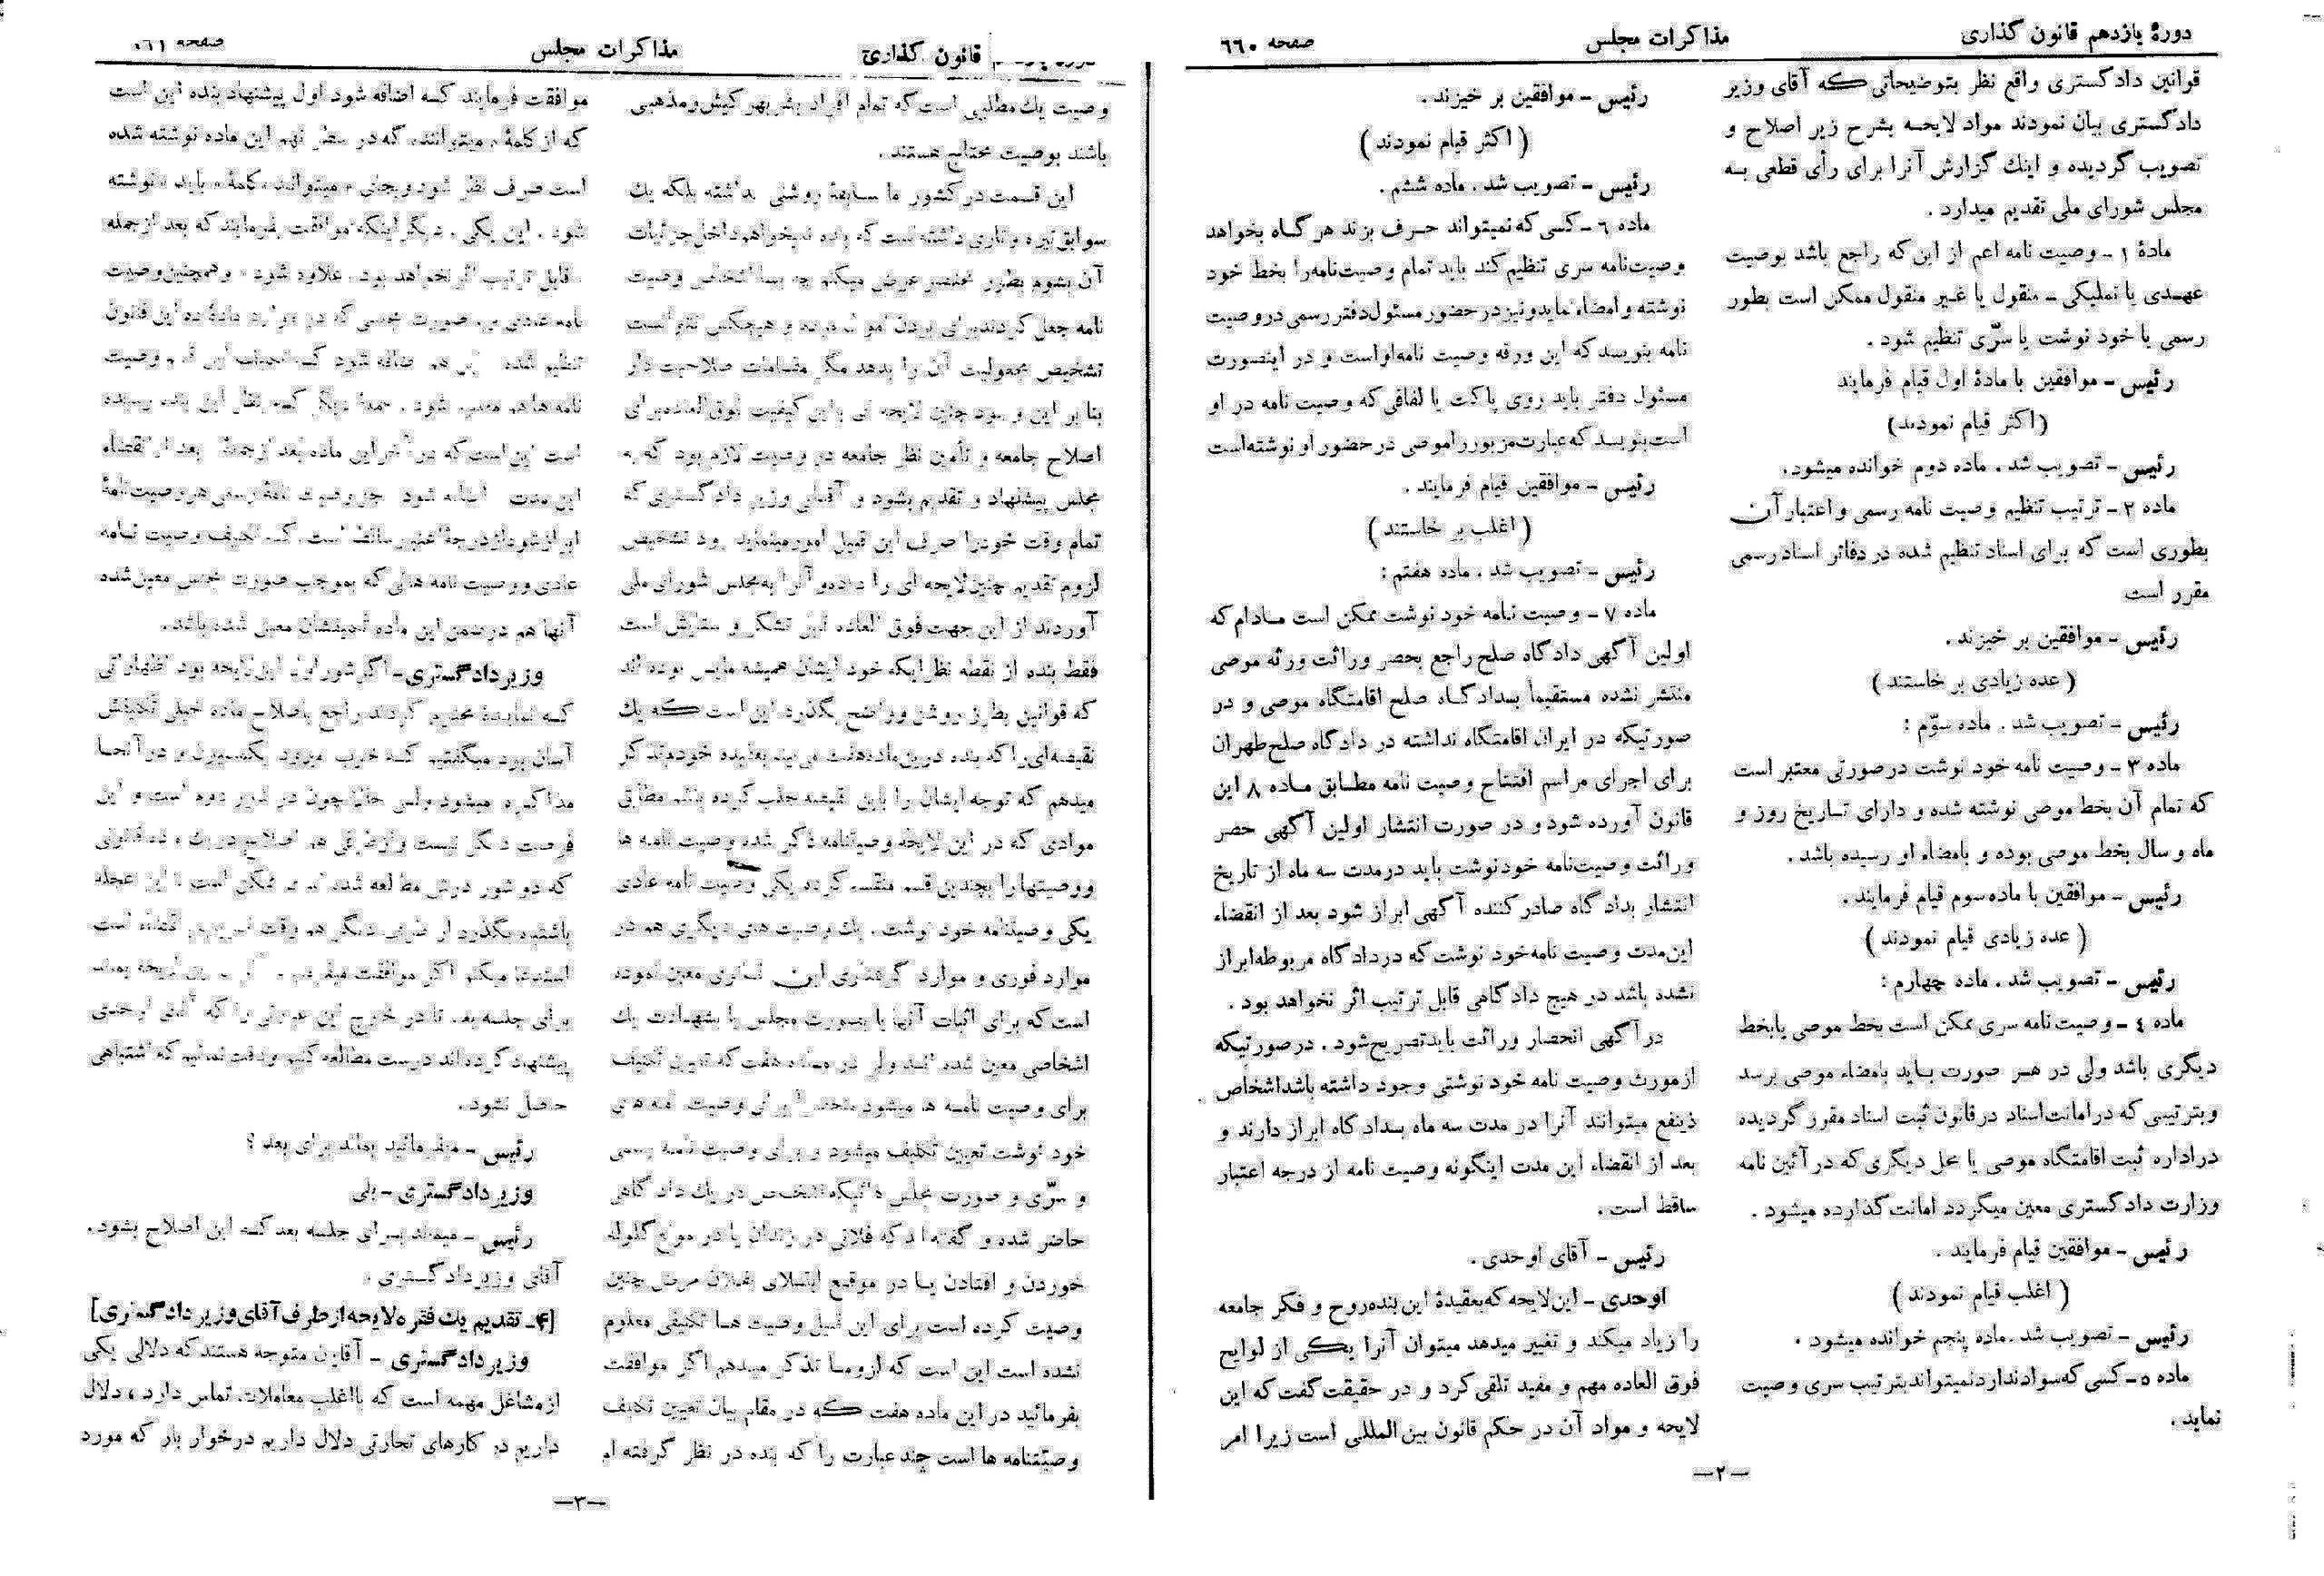 دورهٔ یازدهم قانون گذاری
مذاکرات مجلس
صفحه ۶۶۰
قوانین دادگستری واقع نظر بتوضیحاتی که آقای وزیر
دادگستری بیان نمودند مواد لایحه بشرح زیر اصلاح و
تصویب گردیده و اینك گزارش آنرا برای رأی قطعی به
مجلس شورای ملی تقدیم میدارد .
مادهٔ ۱ ـ وصیت نامه اعم از این که راجع باشد بوصیت
عهدی یا تملیکی ـ منقول یا غیر منقول ممکن است بطور
رسمی یا خود نوشت یا سرّی تنظیم شود .
رئیس ـ موافقین با مادهٔ اول قیام فرمایند
(اکثر قیام نمودند)
رئیس ـ تصویب شد . ماده دوم خوانده میشود.
ماده ۲ ـ ترتیب تنظیم وصیت نامه رسمی و اعتبار آن
بطوری است که برای اسناد تنظیم شده در دفاتر اسناد رسمی
مقرر است
رئیس ـ موافقین بر خیزند .
( عده زیادی بر خاستند )
رئیس ـ تصویب شد . ماده سوّم :
ماده ۳ ـ وصیت نامه خود نوشت در صورتی معتبر است
که تمام آن بخط موصی نوشته شده و دارای تاریخ روز و
ماه و سال بخط موصی بوده و بامضاء او رسیده باشد .
رئیس ـ موافقین با ماده سوم قیام فرمایند .
( عده زیادی قیام نمودند )
رئیس ـ تصویب شد . ماده چهارم :
ماده ٤ ـ وصیت نامه سری ممکن است بخط موصی یا بخط
دیگری باشد ولی در هر صورت باید بامضاء موصی برسد
و بترتیبی که در امانت اسناد در قانون ثبت اسناد مقرر گردیده
در اداره ثبت اقامتگاه موصی یا محل دیگری که در آئین نامه
وزارت دادگستری معین میگردد امانت گذارده میشود .
رئیس ـ موافقین قیام فرمایند .
( اغلب قیام نمودند )
رئیس ـ تصویب شد . ماده پنجم خوانده میشود .
ماده ٥ ـ کسی که سواد ندارد نمیتواند بترتیب سری وصیت
نماید .
رئیس ـ موافقین بر خیزند .
( اکثر قیام نمودند )
رئیس ـ تصویب شد . ماده ششم .
ماده ٦ ـ کسی که نمیتواند حرف بزند هر گاه بخواهد
وصیت نامه سری تنظیم کند باید تمام وصیت نامه را بخط خود
نوشته و امضاء نماید و نیز در حضور مسئول دفتر رسمی در وصیت
نامه بنویسد که این ورقه وصیت نامه او است و در اینصورت
مسئول دفتر باید روی پاکت یا لفافی که وصیت نامه در او
است بنویسد که عبارت مزبور را موصی در حضور او نوشته است
رئیس ـ موافقین قیام فرمایند .
( اغلب بر خاستند )
رئیس ـ تصویب شد . ماده هفتم :
ماده ۷ ـ وصیت نامه خود نوشت ممکن است مادام که
اولین آگهی دادگاه صلح راجع بحصر وراثت ورثه موصی
منتشر نشده مستقیماً بدادگاه صلح اقامتگاه موصی و در
صورتیکه در ایران اقامتگاه نداشته در دادگاه صلح طهران
برای اجرای مراسم افتتاح وصیت نامه مطابق ماده ۸ این
قانون آورده شود و در صورت انتشار اولین آگهی حصر
وراثت وصیت نامه خود نوشت باید در مدت سه ماه از تاریخ
انتشار بدادگاه صادر کننده آگهی ابراز شود بعد از انقضاء
این مدت وصیت نامه خود نوشت که در دادگاه مربوطه ابراز
نشده باشد در هیچ دادگاهی قابل ترتیب اثر نخواهد بود .
در آگهی انحصار وراثت باید تصریح شود . در صورتیکه
از مورث وصیت نامه خود نوشتی وجود داشته باشد اشخاص
ذینفع میتوانند آنرا در مدت سه ماه بدادگاه ابراز دارند و
بعد از انقضاء این مدت اینگونه وصیت نامه از درجه اعتبار
ساقط است .
رئیس ـ آقای اوحدی .
اوحدی ـ این لایحه که بعقیدهٔ این بنده روح و فکر جامعه
را زیاد میکند و تغییر میدهد میتوان آنرا یکی از لوایح
فوق العاده مهم و مفید تلقی کرد و در حقیقت گفت که این
لایحه و مواد آن در حکم قانون بین المللی است زیرا امر
ـ۲ـ
قانون گذاری
مذاکرات مجلس
صفحه
وصیت یك مطلبی است که تمام افراد بشر بهر کیش و مذهبی
باشند بوصیت محتاج هستند .
این قسمت در کشور ما سابقهٔ روشنی نداشته بلکه یك
سوابق تیره و تاری داشته است که بنده نمیخواهم داخل جزئیات
آن بشوم بطور مختصر عرض میکنم چه بسا اشخاص وصیت
نامه جعل کردند برای بردن اموال مرده و هیچکس نتوانست
تشخیص مجعولیت آن را بدهد مگر مقامات صلاحیت دار
بنا بر این وجود چنین لایحه ای باین کیفیت فوق العاده برای
اصلاح جامعه و تأمین نظر جامعه در وصیت لازم بود که به
مجلس پیشنهاد و تقدیم بشود و آقای وزیر دادگستری که
تمام وقت خود را صرف این قبیل امور مینمایند تشخیص
لزوم تقدیم چنین لایحه ای را داده و آنرا به مجلس شورای ملی
آوردند از این جهت فوق العاده تشکر و ستایش است
فقط بنده از نقطه نظر اینکه خود ایشان همیشه مایل بوده اند
که قوانین بطرز روشن و واضح بگذرد این است که یك
نقیصه ای را که بنده در این ماده هفت می بینم بعقیده خودم تذکر
میدهم که توجه ایشان را باین نقیصه جلب کرده باشم مطابق
موادی که در این لایحه وصیتنامه ذکر شده وصیت نامه ها
و وصیتها را بچندین قسم منقسم کرده یکی وصیت نامه عادی
یکی وصیتنامه خود نوشت . یك وصیت های دیگری هم در
موارد فوری و موارد گرفتاری این قانون معین نموده
است که برای اثبات آنها یا بصورت مجلس یا بشهادت یك
اشخاصی معین شده اند ولی در ماده هفت که تعیین تکلیف
برای وصیت نامه ها میشود منحصراً برای وصیت نامه های
خود نوشت تعیین تکلیف میشود و برای وصیت نامه رسمی
و سرّی و صورت مجلس هائیکه اشخاص در یك دادگاهی
حاضر شده و گفته اند که فلانی در زندان یا در موقع گلوله
خوردن و افتادن یا در موقع ابتلای بفلان مرض چنین
وصیت کرده است برای این قبیل وصیت ها تکلیفی معلوم
نشده است این است که لزوماً تذکر میدهم اگر موافقت
بفرمائید در این ماده هفت که در مقام بیان تعیین تکلیف
وصیّتنامه ها است چند عبارت را که بنده در نظر گرفته ام
موافقت فرمایند که اضافه شود اول پیشنهاد بنده این است
که از کلمهٔ « میتوانند» که در سطر نهم این ماده نوشته شده
است صرف نظر شود و بجای « میتوانند» کلمهٔ « باید » نوشته
شود . این یکی . دیگر اینکه موافقت بفرمایند که بعد از جمله
قابل ترتیب اثر نخواهد بود. علاوه شود « و همچنین وصیت
نامه عادی
تنظیم شده هم اضافه شود که وصیت
نامه ها هم معین شود . جملهٔ دیگر که بنظر این بنده رسیده
است این است که در آخر این ماده بعد از جملهٔ بعد از انقضاء
این مدت اضافه شود جز وصیت نامهٔ رسمی هر وصیت نامهٔ
ابراز شود از درجهٔ اعتبار ساقط است . که تکلیف وصیت نامه
عادی و وصیت نامه هائی که بموجب صورت مجلس معین شده
آنها هم در ضمن این ماده تکلیفشان معین شده باشد.
وزیر دادگستری ـ اگر شور اول این لایحه بود اظهاراتی
که نماینده محترم کردند راجع باصلاح ماده خیلی تکلیفش
آسان بود میگفتیم که خوب میرود بکمسیون و در آنجا
مذاکره میشود ولی حالا چون در شور دوم است و این
فرصت دیگر نیست و از طرفی هم اصلاح در یك ماده قانونی
که دو شور درش مطالعه شده ممکن است با این عجله
باشتباه بگذرد از طرف دیگر هم وقت
استدعا میکنم اگر موافقت میفرمائید این لایحه بماند
برای جلسه بعد تا در خارج این عبارتی را که آقای اوحدی
پیشنهاد کرده اند درست مطالعه کنیم و دقت نمائیم که اشتباهی
حاصل نشود.
رئیس ـ میفرمائید بماند برای بعد ؟
وزیر دادگستری ـ بلی
رئیس ـ میماند برای جلسه بعد که این اصلاح بشود.
آقای وزیر دادگستری .
[۴ـ تقدیم یك فقره لایحه از طرف آقای وزیر دادگستری]
وزیر دادگستری ـ آقایان متوجه هستند که دلالی یکی
از مشاغل مهمه است که با اغلب معاملات تماس دارد ، دلال
داریم در کارهای تجارتی دلال داریم در خوار بار که مورد
ـ۳ـ